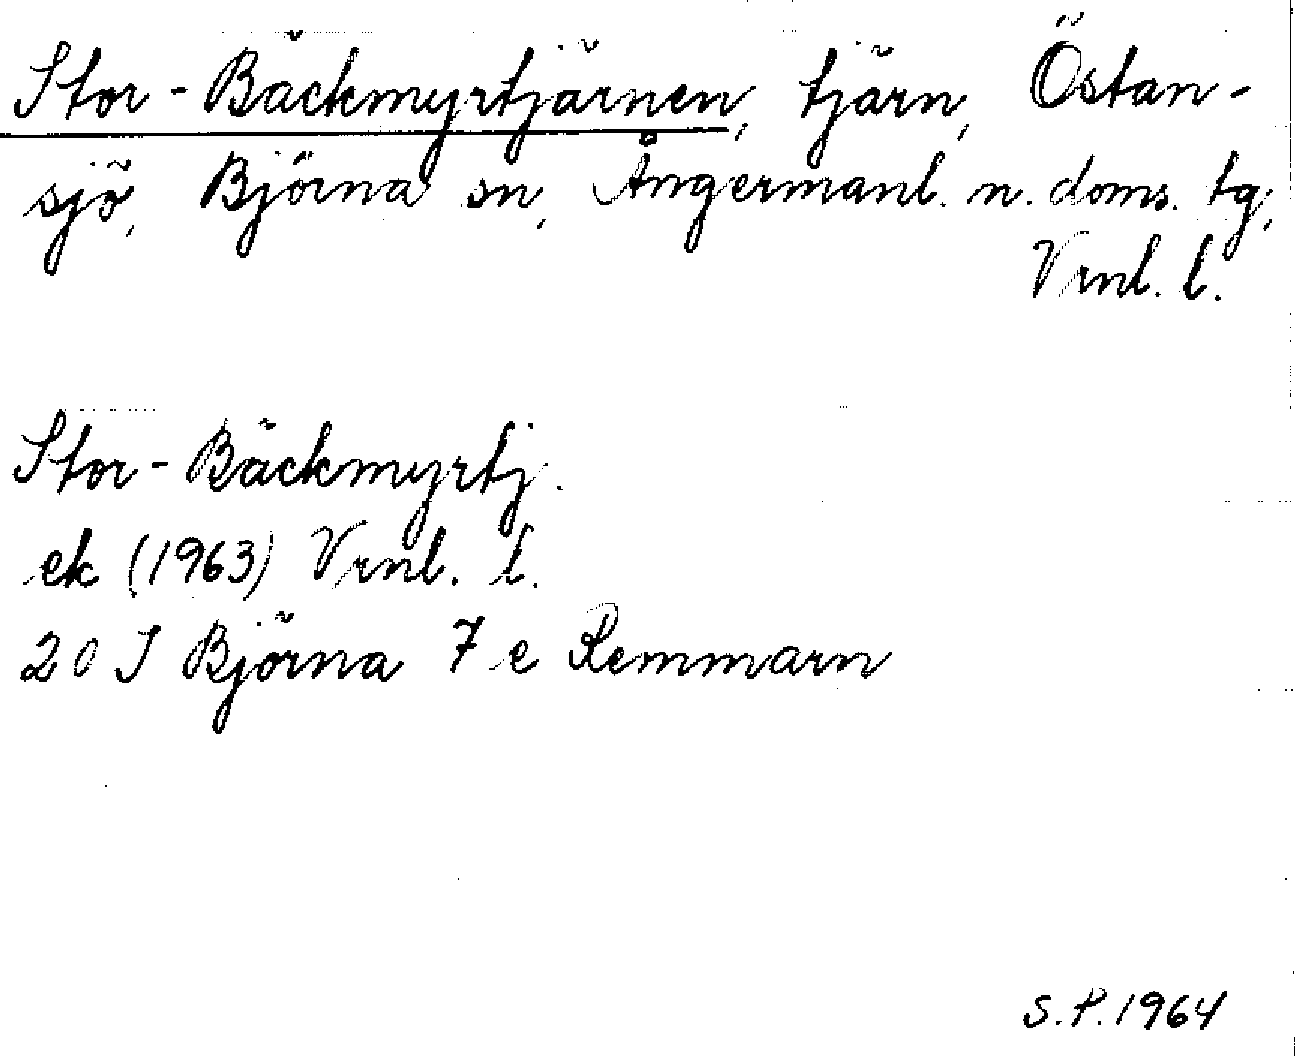 Stor-Bäckmyrtjärnen, tjärn, Östan-
sjö, Björna sn, Ångermanl. n. doms. tg,
Vrnl. l.
Stor-Bäckmyrtj.
ek (1963) Vrnl. l.
20 J Björna 7 e Remmarn
S.P. 1964